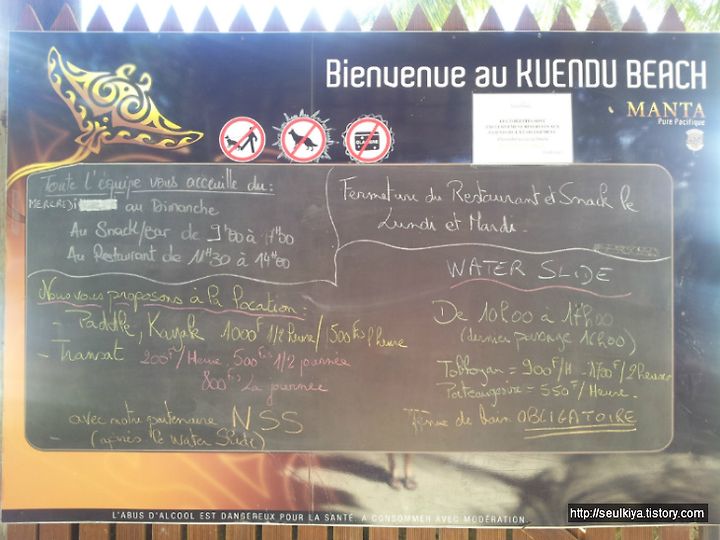 Bienvenue au KUENDU BEACH
MANTA
Pure Pacifique
GLACIERE
Toute l'équipe vous acceuille du:
MERCREDI au Dimanche
Au Snack/Bar de 9h00 à 17h00
Au Restaurant de 11H30 à 14H00
Fermeture du Restaurant et Snack le
Lundi et Mardi.
Nous vous proposons à la location:
- Paddle, Kayak 1000F 1/2 heure/1500F l'heure
- Transat 200F/Heure 500Frs 1/2 journée
800Frs La journée
avec notre partenaire NSS
(après le Water Slide)
WATER SLIDE
De 10h00 à 17h00
(dernier passage 16h00)
Tobbogan = 900F/H - 1700F/2heures
= 550F/Heure.
Ténue de bain OBLIGATOIRE
L'ABUS D'ALCOOL EST DANGEREUX POUR LA SANTÉ. A CONSOMMER AVEC MODÉRATION.
http://seulkiya.tistory.com